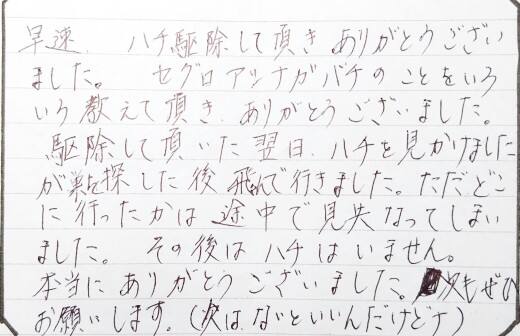 早速、ハチ駆除して頂き ありがとうござい
ました。 セグロアシナガバチの ことをいろ
いろ 教えて頂き、ありがとうございました。
駆除して頂いた翌日、ハチを見かけました
が巣を探した後 飛んで行きました。ただどこ
に行ったかは 途中で見失なってしまい
ました。 その後は ハチは いません。
本当に ありがとう ございました。次もぜひ
お願いします。(次は、ないといいんだけどナ)